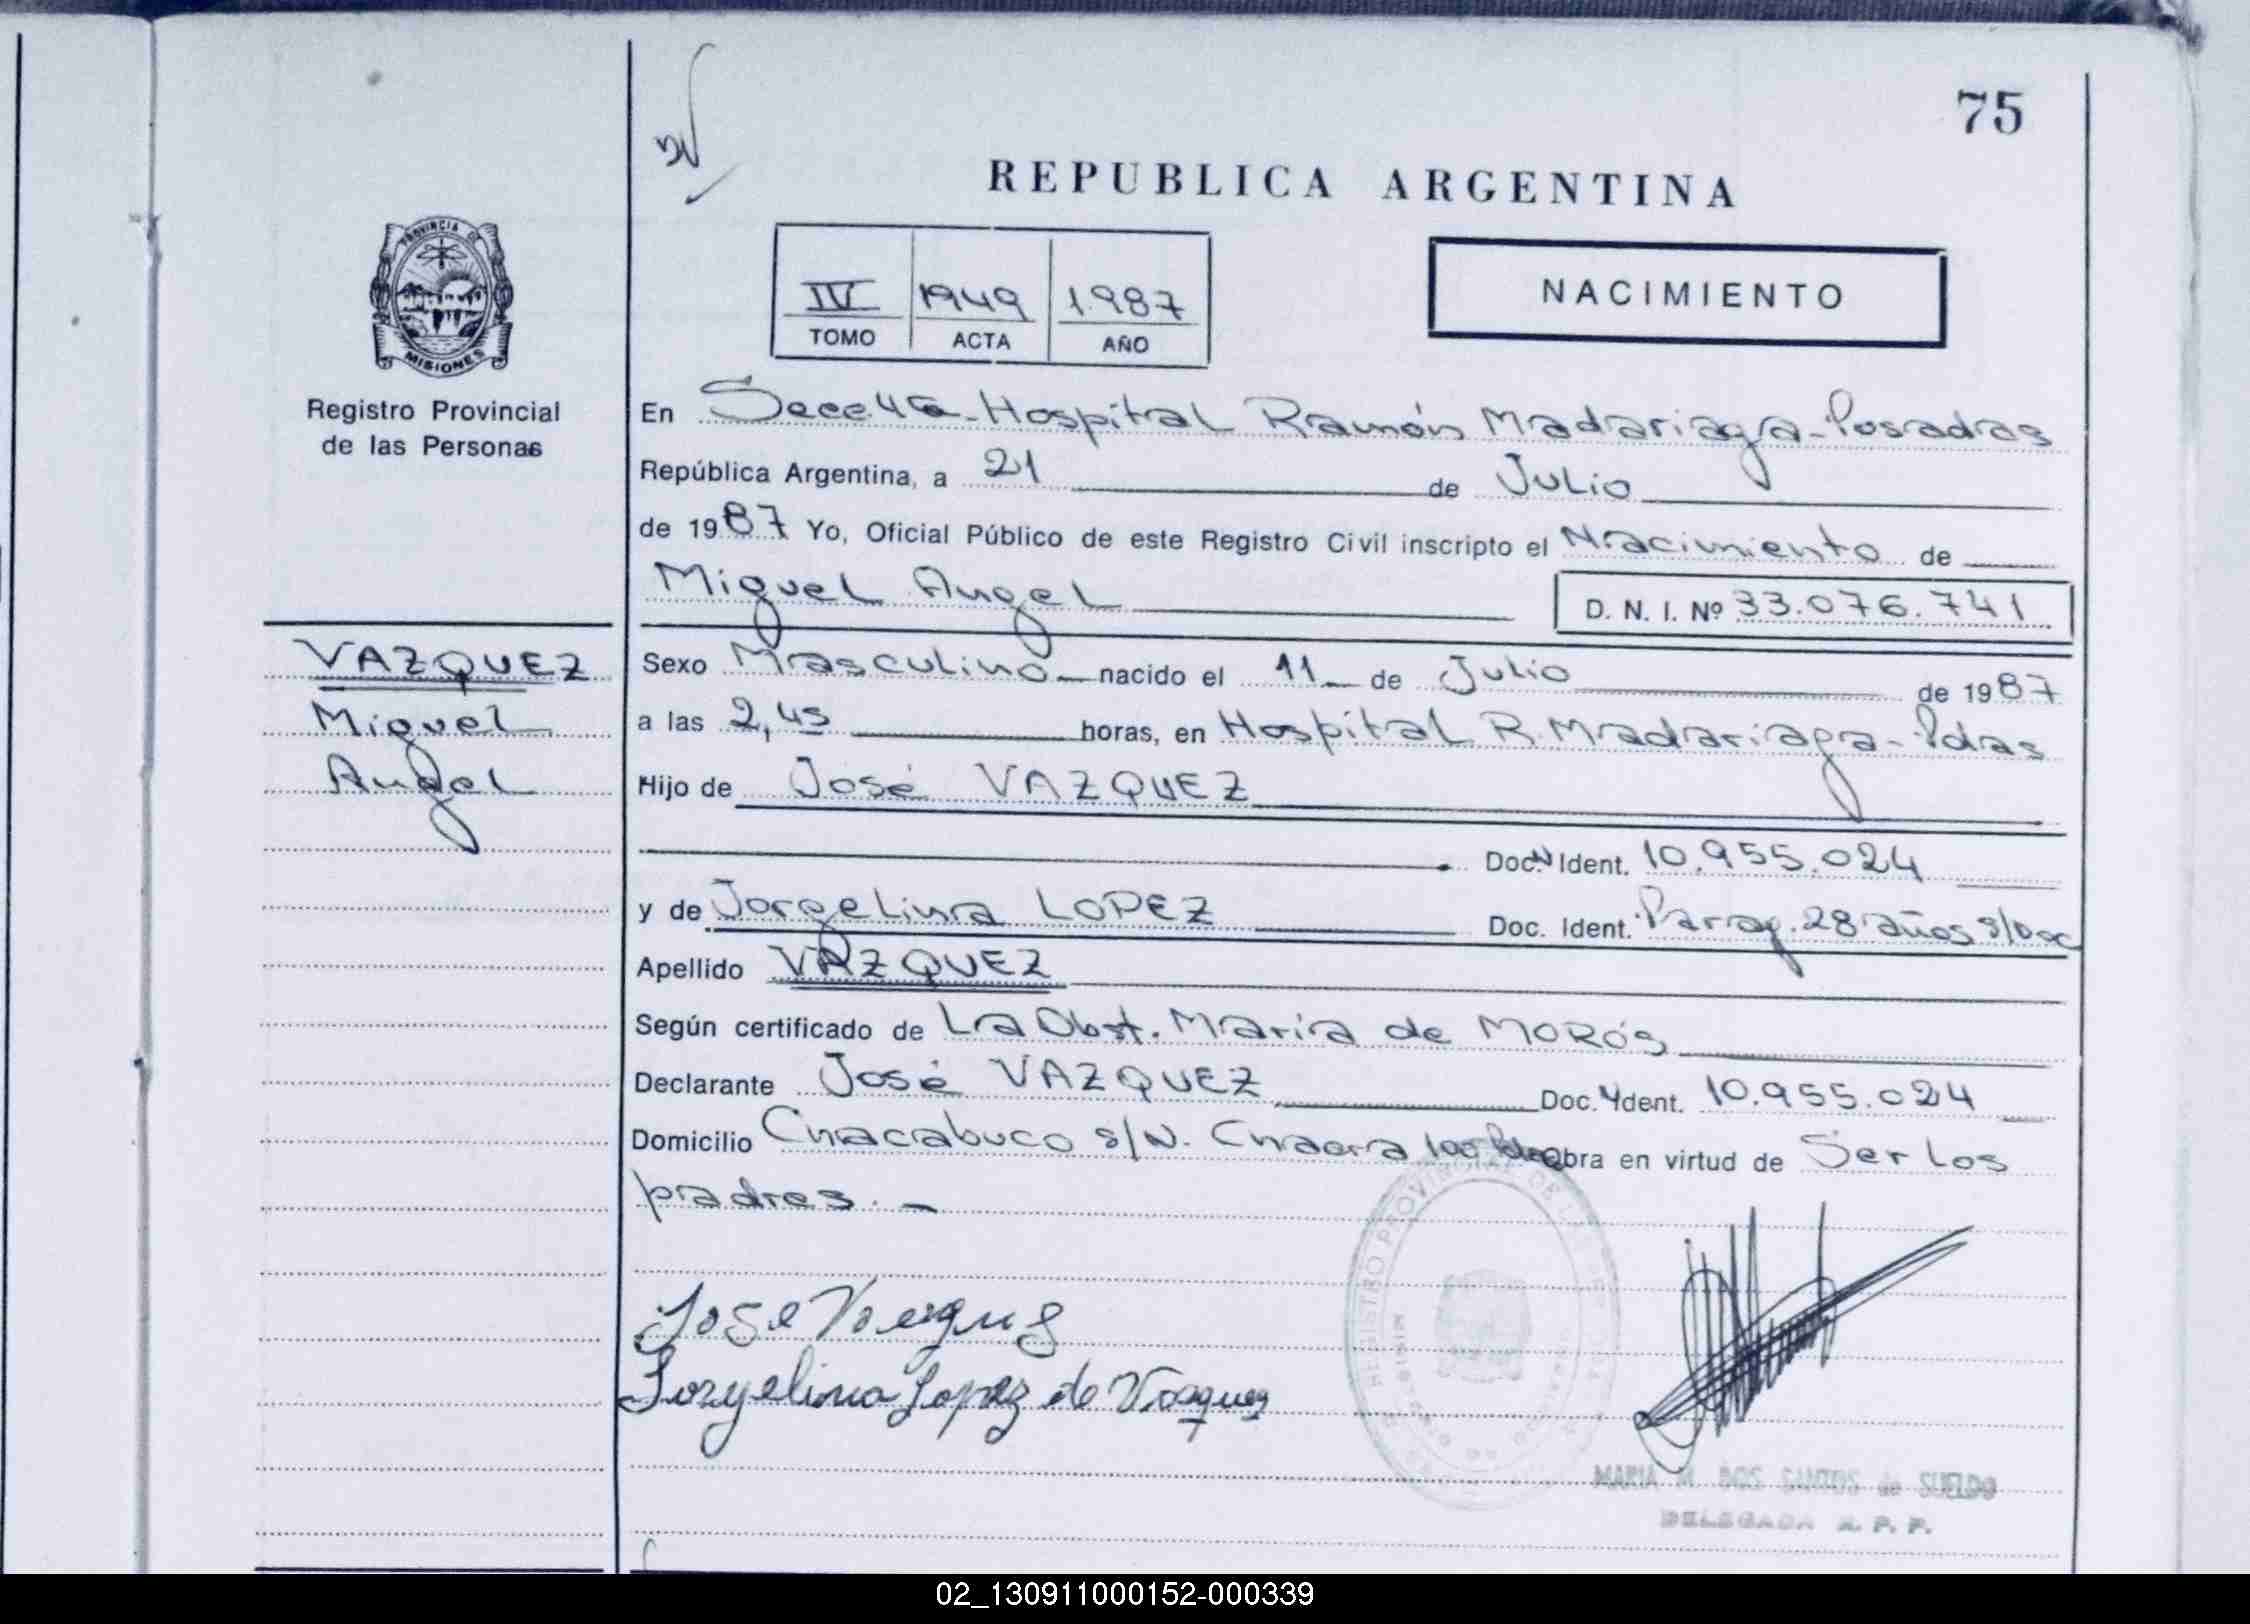 75
REPUBLICA ARGENTINA
PROVINCIA DE
MISIONES
Registro Provincial
de las Personas
IV 1949 1.987
TOMO ACTA AÑO
NACIMIENTO
En Secc. 4a - Hospital Ramón Madariaga - Posadas
República Argentina, a 21 de Julio
de 1987 Yo, Oficial Público de este Registro Civil inscripto el Nacimiento de
Miguel Angel
D. N. I. Nº 33.076.741
VAZQUEZ
Miguel
Angel
Sexo Masculino nacido el 11 de Julio de 1987
a las 2,45 horas, en Hospital R. Madariaga - Pdas
Hijo de José VAZQUEZ
Doc. Ident. 10.955.024
y de Jorgelina LOPEZ Doc. Ident. Parag. 28 años s/Doc
Apellido VAZQUEZ
Según certificado de La Obst. Maria de MORóS
Declarante José VAZQUEZ Doc. Ident. 10.955.024
Domicilio Chacabuco s/N. Chacra Obra en virtud de Ser los
padres. -
Jose Vazquez
Jorgelina Lopez de Vasquez
REGISTRO PROVINCIAL DE LAS
MARIA M. DOS SANTOS de SUELDO
DELEGADA R. P. P.
02_130911000152-000339